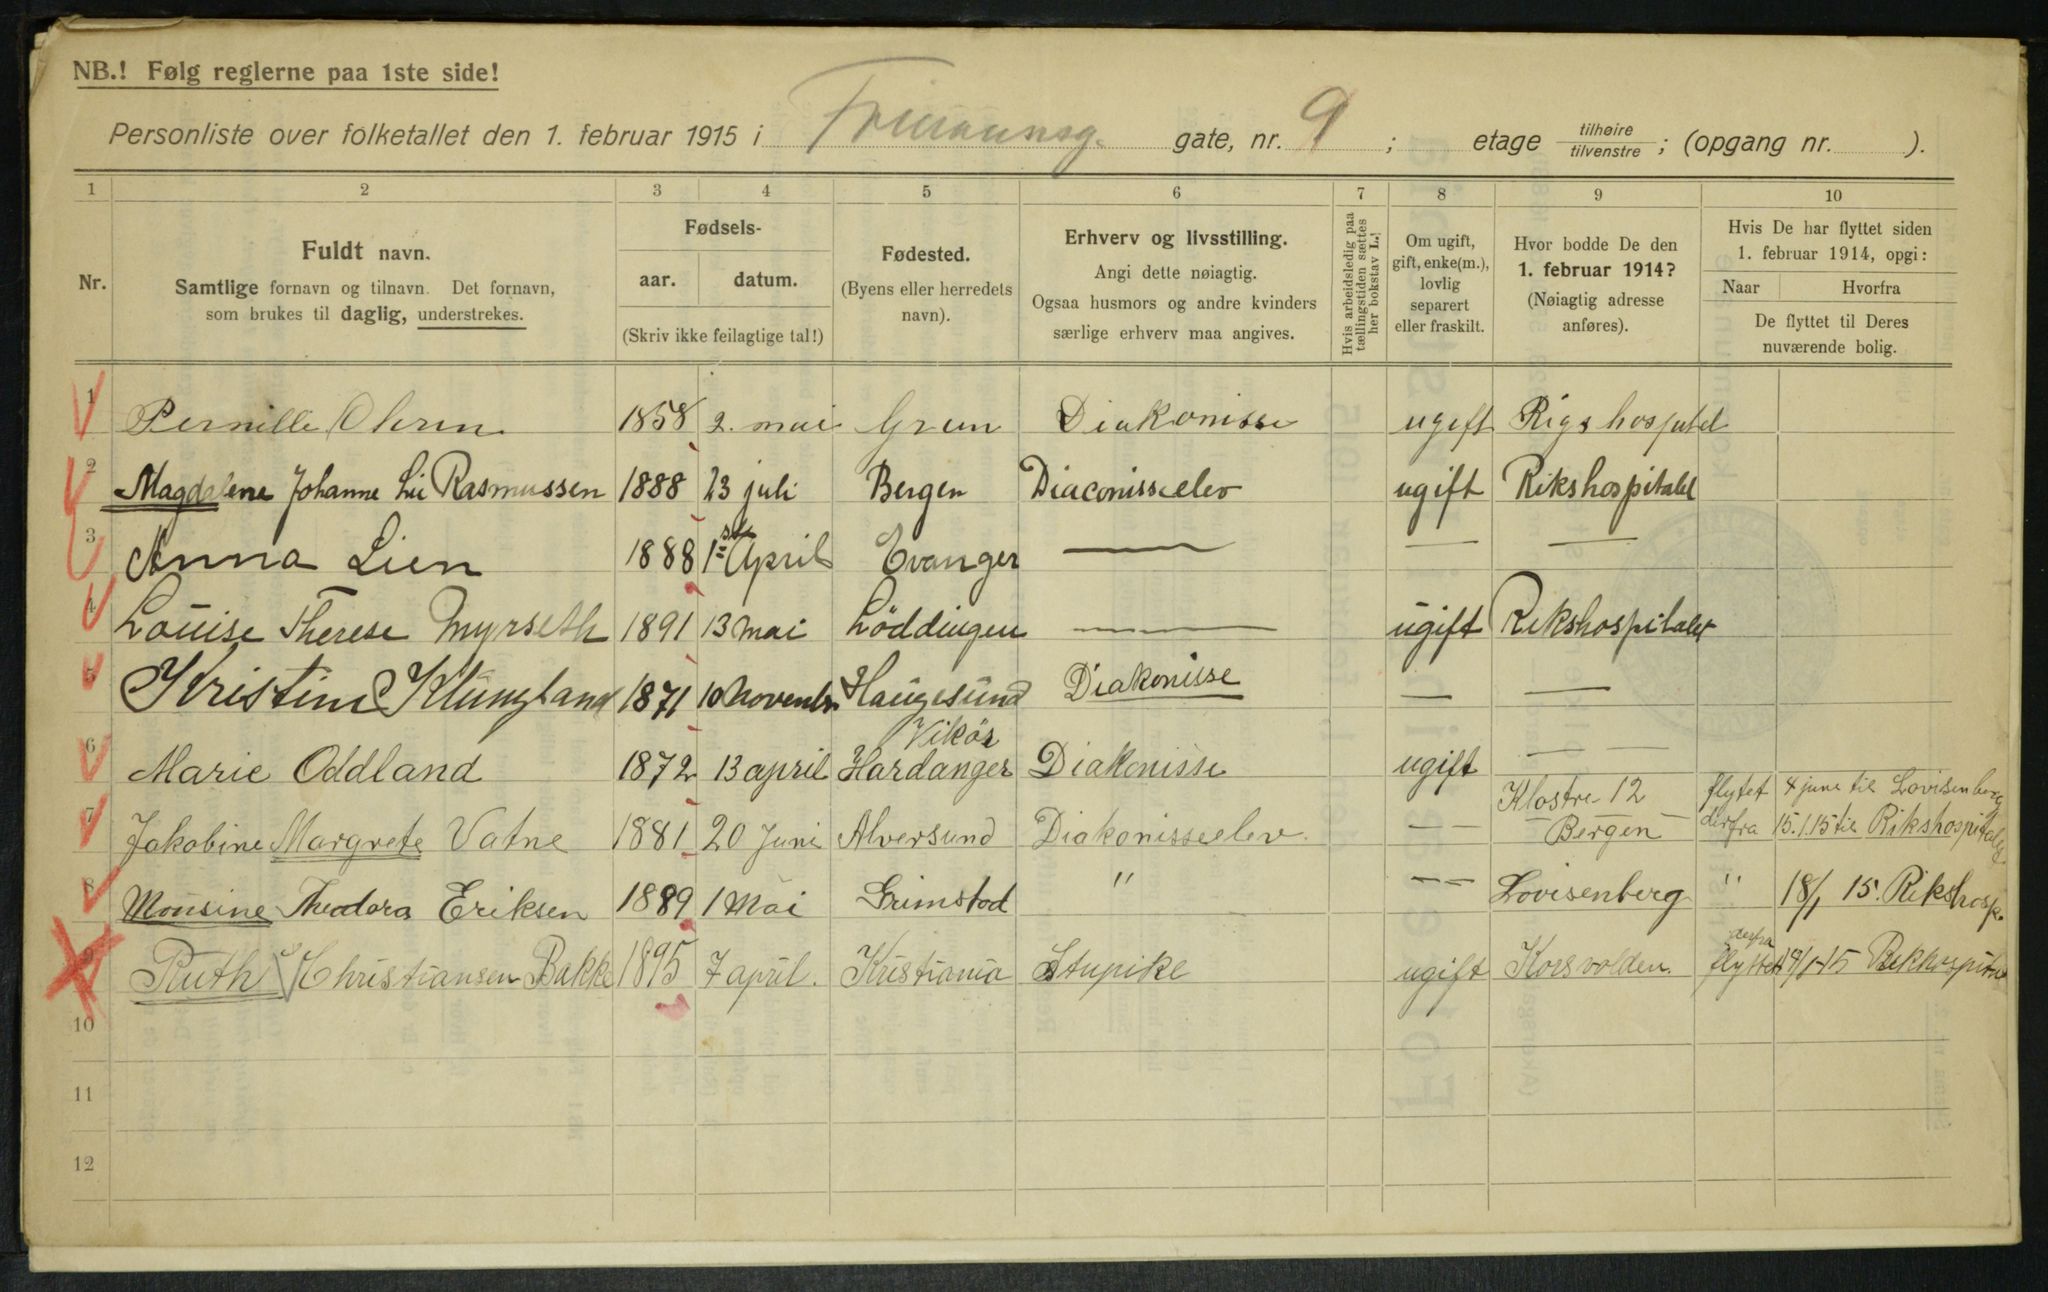 NB.! Følg reglerne paa 1ste side!
Personliste over folketallet den 1. februar 1915 i Frimannsg. gate, nr. 9 ; etage tilhøire tilvenstre ; (opgang nr. ).
1 2 3 4 5 6 7 8 9 10
Nr.
Fuldt navn.
Samtlige fornavn og tilnavn. Det fornavn,
som brukes til daglig, understrekes.
Fødsels-
aar. datum.
(Skriv ikke feilagtige tal!)
Fødested.
(Byens eller herredets
navn).
Erhverv og livsstilling.
Angi dette nøiagtig.
Ogsaa husmors og andre kvinders
særlige erhverv maa angives.
Hvis arbeidsledig paa
tællingstiden sættes
her bokstav L.!
Om ugift,
gift, enke(m.),
lovlig
separert
eller fraskilt.
Hvor bodde De den
1. februar 1914?
(Nøiagtig adresse
anføres).
Hvis De har flyttet siden
1. februar 1914, opgi:
Naar Hvorfra
De flyttet til Deres
nuværende bolig.
1 Pernille Ohren 1858 2. mai Gran Diakonisse ugift Rigshospitalet
2 Magdalene Johanne Lie Rasmussen 1888 23 juli Bergen Diaconisseelev ugift Rikshospitalet
3 Anna Lien 1888 1ste April Evanger — — —
4 Louise Therese Myrseth 1891 13 mai Löddingen — ugift Rikshospitalet
5 Kristine Klungland 1871 10 Novembr Haugesund Diakonisse — —
Vikör
6 Marie Oddland 1872 13 april Hardanger Diakonisse ugift — —
Klostre 12 flytet 4 june til Lovisenberg
7 Jakobine Margrete Vatne 1881 20 Juni Alversund Diakonisseelev. — — Bergen derfra 15.1.15 til Rikshospitalet
8 Monsine Theodora Eriksen 1889 1 Mai Grimstad " — — Lovisenberg " 18/1 15. Rikshosp.
derfra
9 Ruth Christiansen Bakke 1895 7 april. Kristiania Stupike ugift Korsvolden. flyttet 15 Rikhospitalet
10
11
12